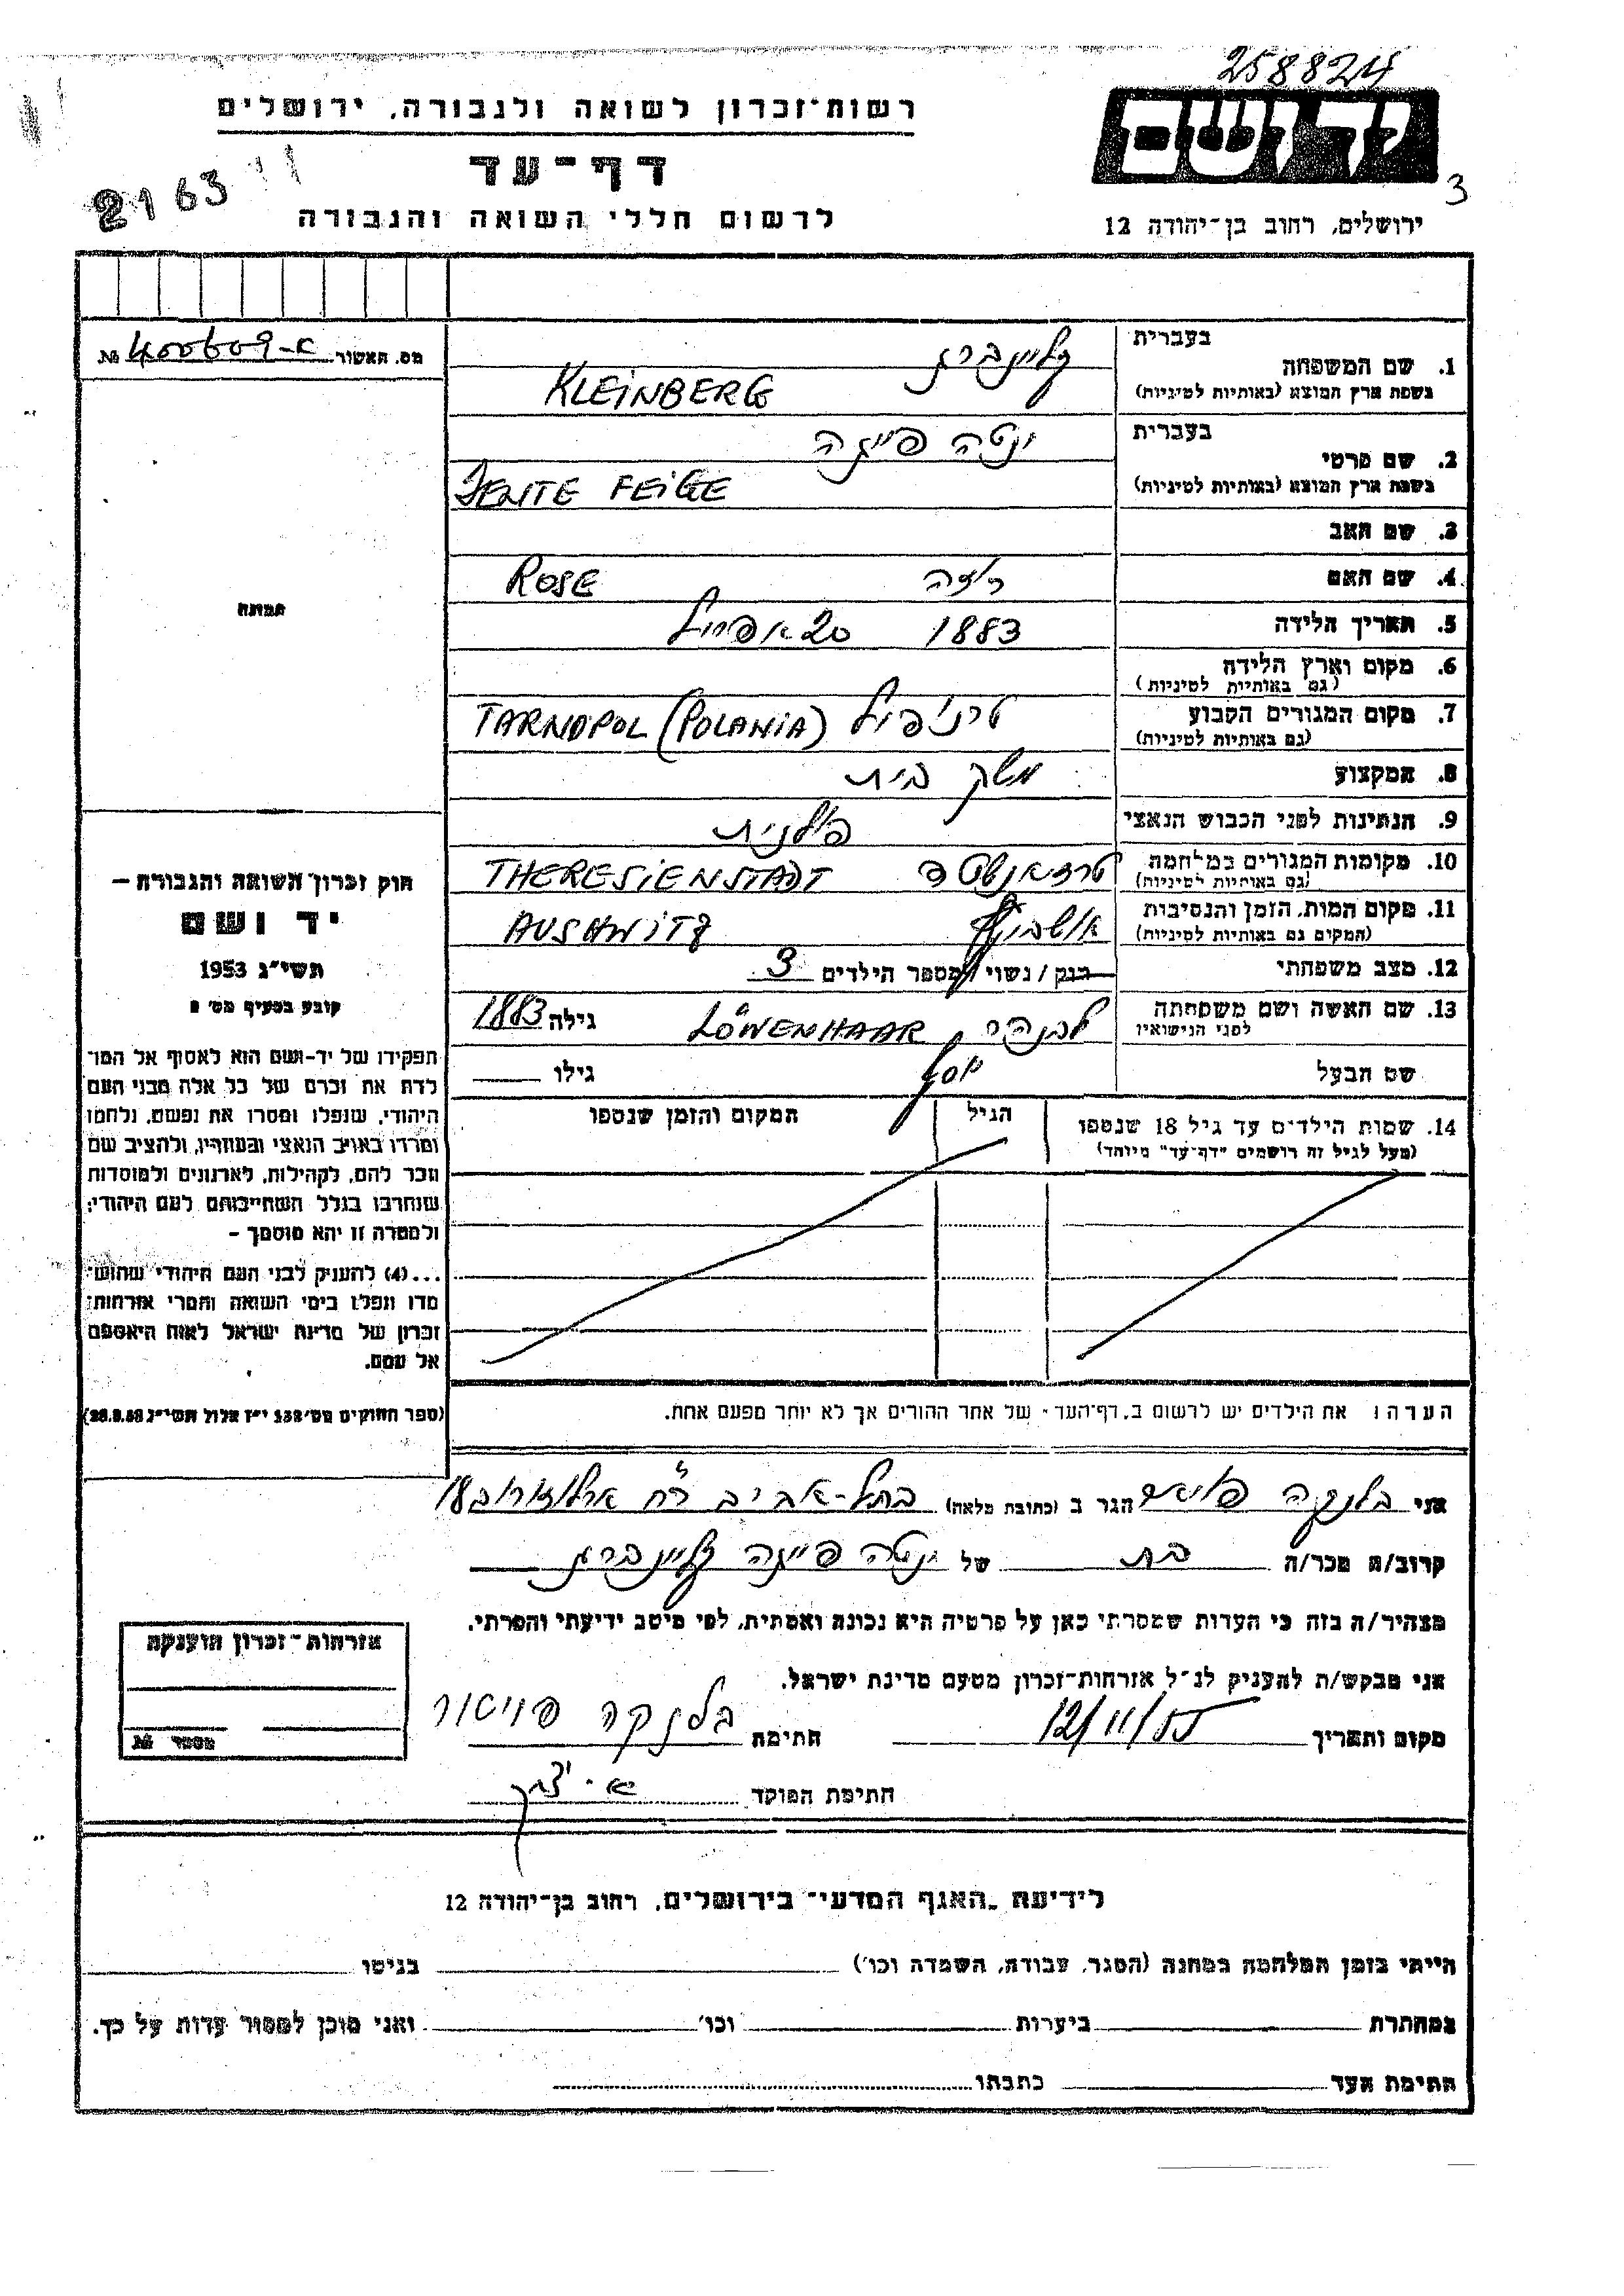 258824
רשות-זכרון לשואה ולגבורה, ירושלים
יד ושם
דף-עד
3
2163
לרשום חללי השואה והגבורה
ירושלים, רחוב בן-יהודה 12
מס. האשור א-400609 №
1. שם המשפחה
בעברית קליינברג
בשפת ארץ המוצא (באותיות לטיניות) KLEINBERG
2. שם פרטי
בעברית ינטה פייגה
בשפת ארץ המוצא (באותיות לטיניות) JENTE FEIGE
3. שם האב
4. שם האם רוזה ROSE
5. תאריך הלידה 1883 20 אפריל
6. מקום וארץ הלידה
(גם באותיות לטיניות)
7. מקום המגורים הקבוע טרנופול TARNOPOL (POLANIA)
(גם באותיות לטיניות)
8. המקצוע משק בית
9. הנתינות לפני הכבוש הנאצי פולנית
10. מקומות המגורים במלחמה THERESIENSTADT
(גם באותיות לטיניות)
11. מקום המות, הזמן והנסיבות אושביץ AUSHWITZ
(המקום גם באותיות לטיניות)
12. מצב משפחתי רוק / נשוי / מספר הילדים 3
13. שם האשה ושם משפחתה LÖWENHAAR גילה 1883
לפני הנישואין
שם הבעל יוסף גילו
14. שמות הילדים עד גיל 18 שנספו הגיל המקום והזמן שנספו
(מעל לגיל זה רושמים "דף-עד" מיוחד)
הערה: את הילדים יש לרשום ב"דף-העד" של אחד ההורים אך לא יותר מפעם אחת.
תמונה
חוק זכרון השואה והגבורה –
יד ושם
תשי"ג 1953
קובע בסעיף מס' 2
תפקידו של יד-ושם הוא לאסוף אל המו־
לדת את זכרם של כל אלה מבני העם
היהודי, שנפלו ומסרו את נפשם, נלחמו
ומרדו באויב הנאצי ובעוזריו, ולהציב שם
וזכר להם, לקהילות, לארגונים ולמוסדות
שנחרבו בגלל השתייכותם לעם היהודי;
ולמטרה זו יהא מוסמך –
...(4) להעניק לבני העם היהודי שהוש־
מדו ונפלו בימי השואה והמרי אזרחות־
זכרון של מדינת ישראל לאות היאספם
אל עמם.
(ספר החוקים מס' 132 י"ז אלול תשי"ג 28.8.53)
אני בלנקה הגר ב (כתובת מלאה) בתל-אביב רח' ארלוזורוב 18
קרוב/ה מכר/ה בת של ינטה פייגה קליינברג
מצהיר/ה בזה כי העדות שמסרתי כאן על פרטיה היא נכונה ואמתית, לפי מיטב ידיעתי והכרתי.
אני מבקש/ת להעניק לנ"ל אזרחות-זכרון מטעם מדינת ישראל.
מקום ותאריך 12/11/55 חתימה בלנקה
חתימת הפוקד
אזרחות-זכרון הוענקה
מספר №
לידיעת "האגף המדעי" בירושלים, רחוב בן-יהודה 12
הייתי בזמן המלחמה במחנה (הסגר, עבודה, השמדה וכו') בגיטו
במחתרת ביערות וכו' ואני מוכן למסור עדות על כך.
חתימת העד כתבתו